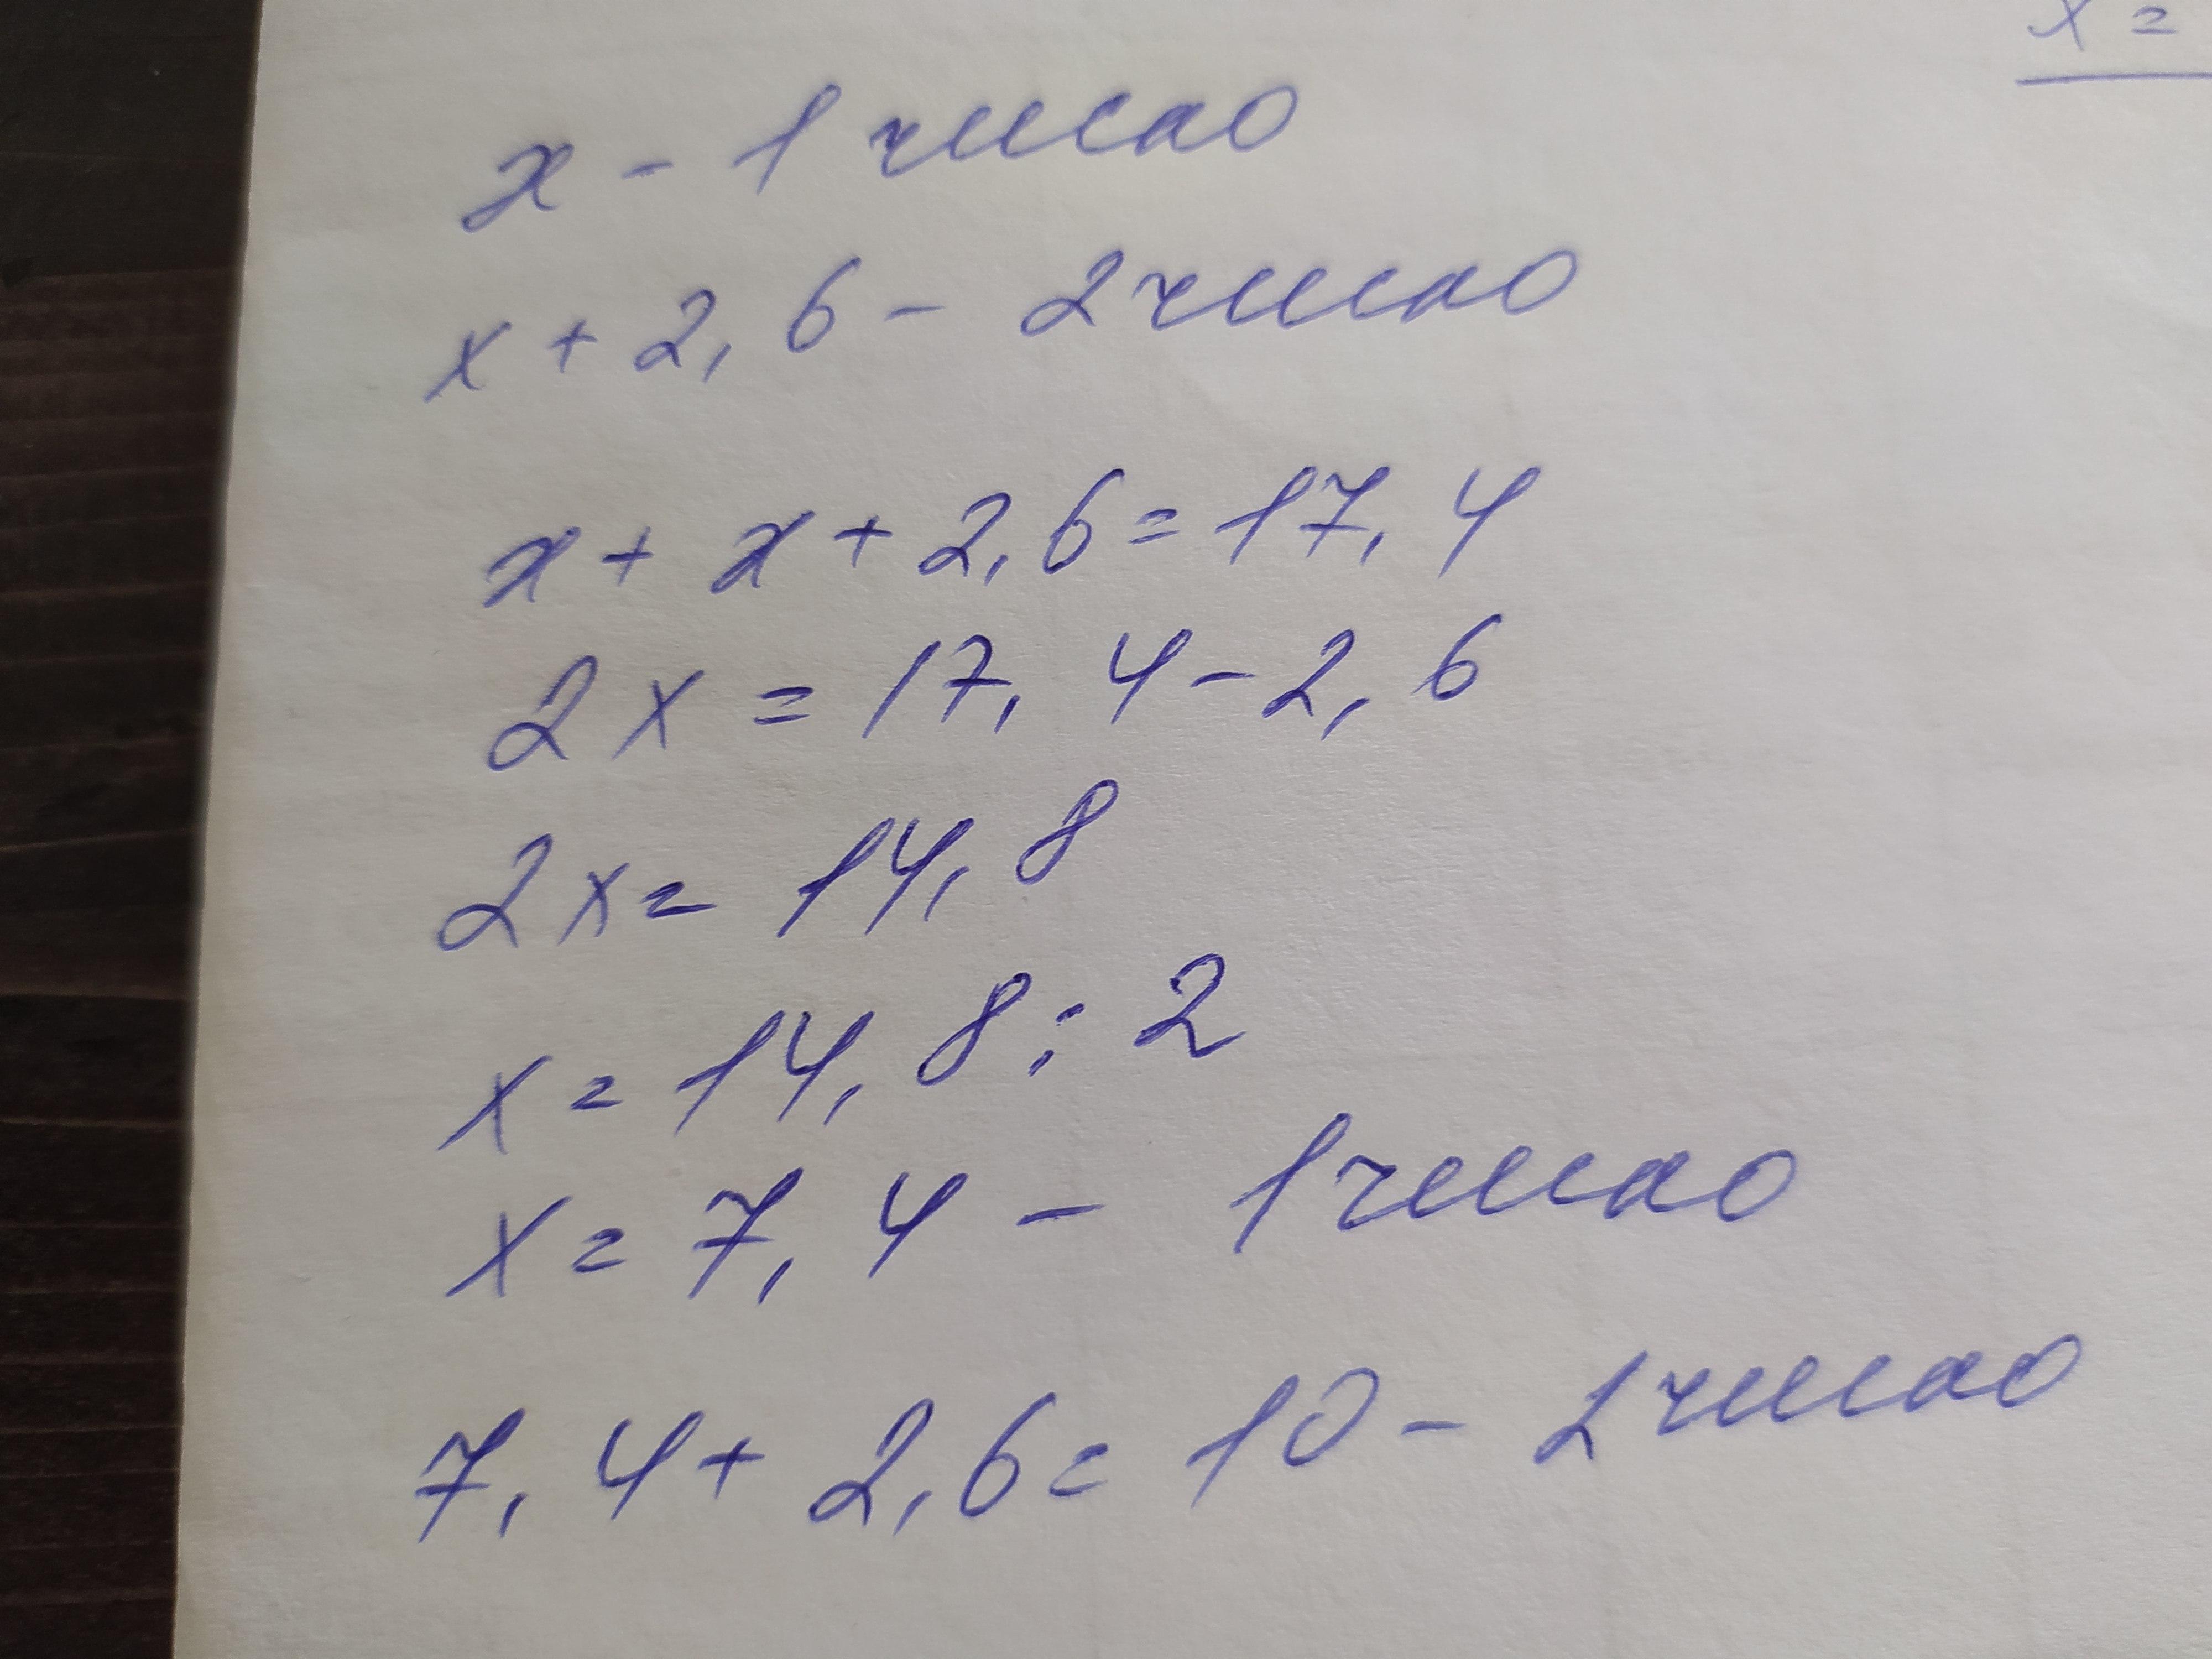 x =
x - 1 число
x + 2,6 - 2 число
x + x + 2,6 = 17,4
2x = 17,4 - 2,6
2x = 14,8
x = 14,8 : 2
x = 7,4 - 1 число
7,4 + 2,6 = 10 - 2 число